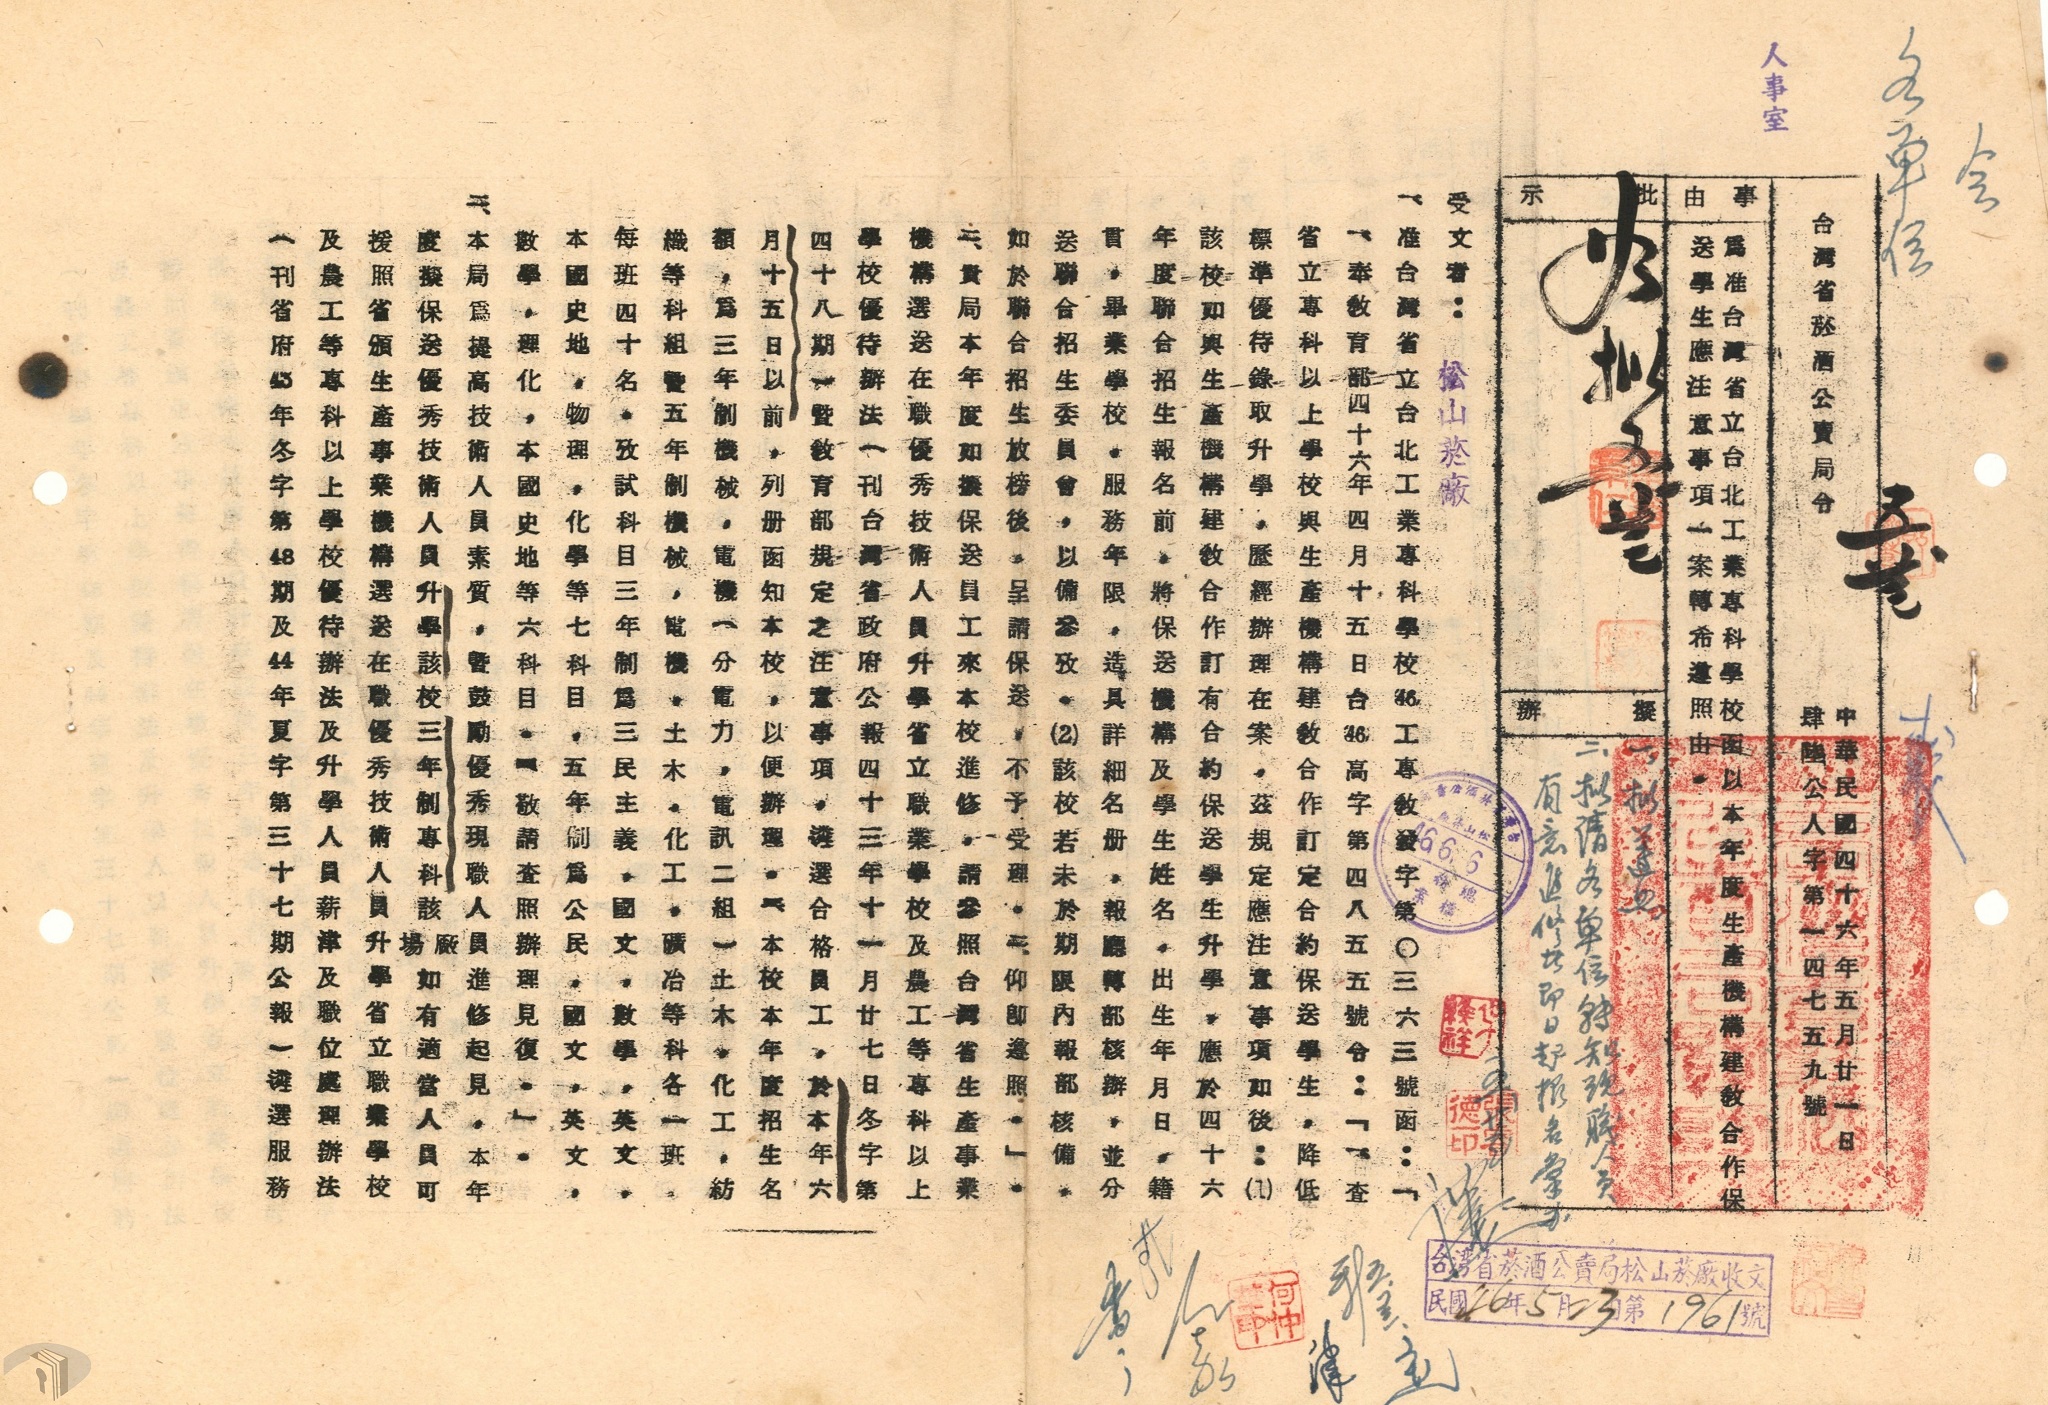 會
各單位
人事室
台灣省菸酒公賣局令
中華民國四十六年五月廿一日
肆陸公人字第一四七五九號
事由
為准台灣省立台北工業專科學校函以本年度生產機構建教合作保
送學生應注意事項一案轉希遵照由。
批示
擬辦
一、擬遵照
二、擬請各單位轉知現職人員
有意進修者即日起報名彙辦
受文者：松山菸廠
一、准台灣省立台北工業專科學校46工專教發字第〇三六三號函：「
一、奉教育部四十六年四月十五日台46高字第四八五五號令：「一、查
省立專科以上學校與生產機構建教合作訂定合約保送學生，降低
標準優待錄取升學，歷經辦理在案，茲規定應注意事項如後：(1)
該校如與生產機構建教合作訂有合約保送學生升學，應於四十六
年度聯合招生報名前，將保送機構及學生姓名，出生年月日，籍
貫，畢業學校，服務年限，造具詳細名册，報廳轉部核辦，並分
送聯合招生委員會，以備參攷。(2)該校若未於期限內報部核備，
如於聯合招生放榜後，呈請保送，不予受理。二、仰即遵照。」。
二、貴局本年度如擬保送員工來本校進修，請參照台灣省生產事業
機構選送在職優秀技術人員升學省立職業學校及農工等專科以上
學校優待辦法（刊台灣省政府公報四十三年十一月廿七日冬字第
四十八期）暨教育部規定之注意事項，遴選合格員工，於本年六
月十五日以前，列册函知本校，以便辦理。三、本校本年度招生名
額，為三年制機械，電機（分電力，電訊二組）土木，化工，紡
織等科組暨五年制機械，電機，土木，化工，礦冶等科各一班
每班四十名。攷試科目三年制為三民主義，國文，數學，英文，
本國史地，物理，化學等七科目，五年制為公民，國文，英文，
數學，理化，本國史地等六科目。一敬請查照辦理見復。」。
二、本局為提高技術人員素質，暨鼓勵優秀現職人員進修起見，本年
度擬保送優秀技術人員升學該校三年制專科該廠場如有適當人員可
援照省頒生產事業機構選送在職優秀技術人員升學省立職業學校
及農工等專科以上學校優待辦法及升學人員薪津及職位處理辦法
（刊省府43年冬字第48期及44年夏字第三十七期公報）遴選服務
46.6.6
台灣省菸酒公賣局松山菸廠收文
民國46年5月23日第1961號